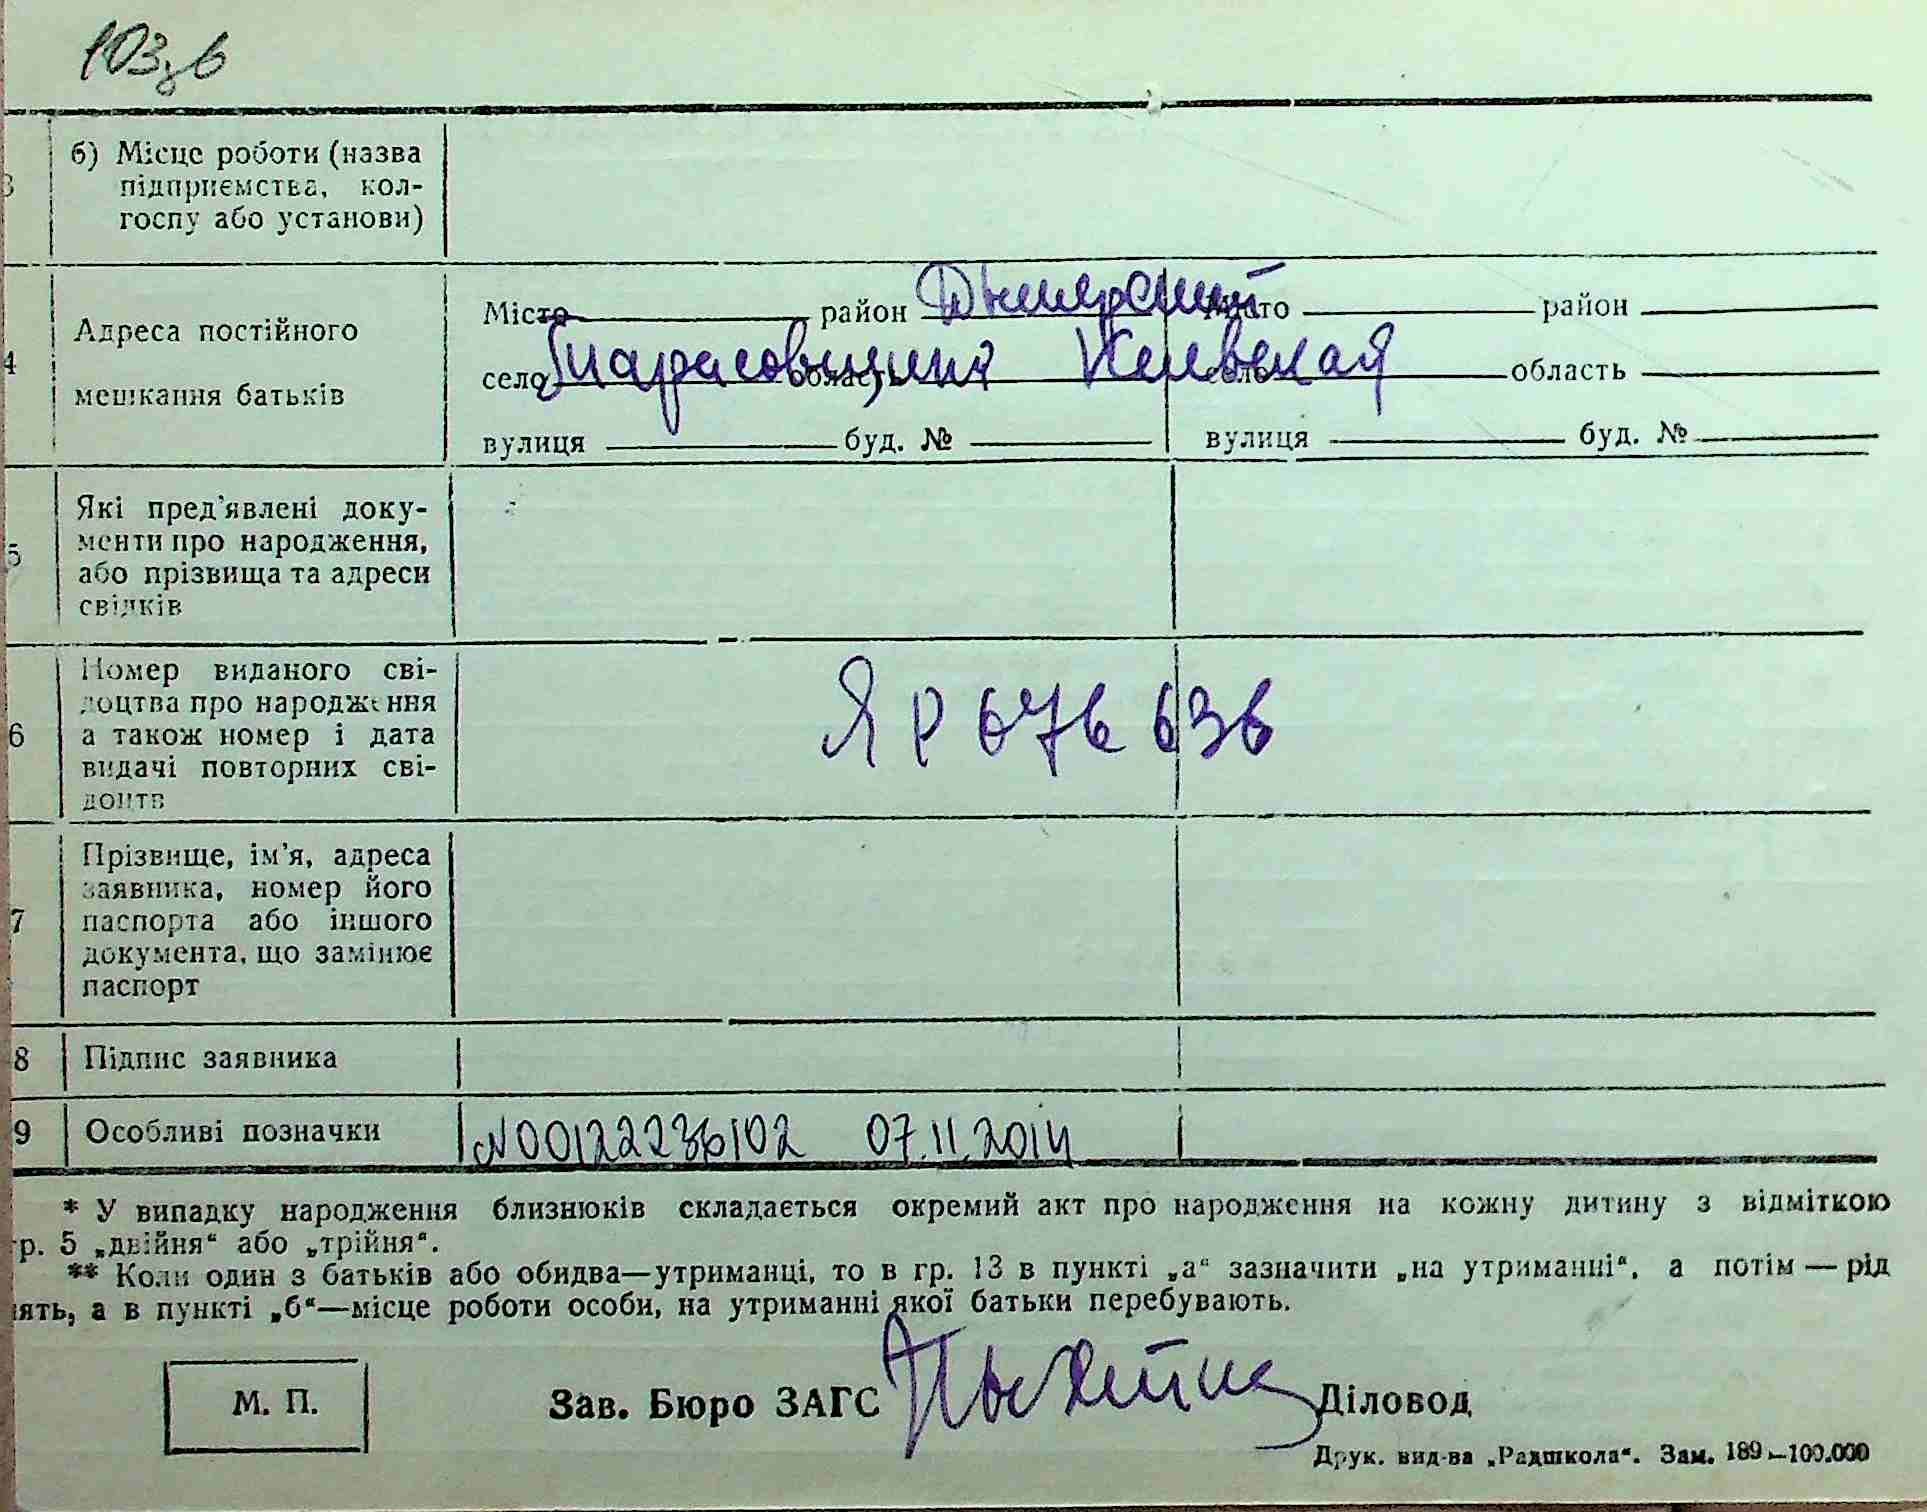 103зв
3
б) Місце роботи (назва
підприємства, кол-
госпу або установи)
4
Адреса постійного
мешкання батьків
Місто район Дымерский Місто район
село Тарасовщина область Киевская село область
вулиця буд. № вулиця буд. №
5
Які пред'явлені доку-
менти про народження,
або прізвища та адреси
свідків
6
Номер виданого сві-
доцтва про народження
а також номер і дата
видачі повторних сві-
доцтв
ЯР 676 636
7
Прізвище, ім'я, адреса
заявника, номер його
паспорта або іншого
документа, що замінює
паспорт
8 Підпис заявника
9 Особливі позначки N00122236102 07.11.2014
* У випадку народження близнюків складається окремий акт про народження на кожну дитину з відміткою
гр. 5 „двійня“ або „трійня“.
** Коли один з батьків або обидва—утриманці, то в гр. 13 в пункті „а“ зазначити „на утриманні“, а потім — рід
нять, а в пункті „б“—місце роботи особи, на утриманні якої батьки перебувають.
М. П. Зав. Бюро ЗАГС Діловод
Друк. вид-ва „Радшкола“. Зам. 189 —100.000